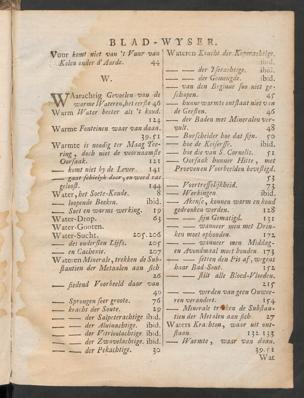 BLAD-WYSER.
Vuur komt niet van 't Vuur van
Kolen onder d'Aarde. 44
W.
WAarachtig Gevoelen van de
warme Wateren, het eerste 46
Warm Water beeter als 't koud.
124
Warme Fonteinen waar van daan.
39.51
Warmte is noodig ter Maag Tee-
ring, doch niet de voornaamste
Oorsaak. 121
— komt niet by de Lever. 141
geloost. 144
Water, het Soete-Kende. 8
— loopende Beeken. ibid.
— Soet en warms werking. 19
Water-Drop. 61
Water-Gooten.
Water-Sucht. 205.206
— des ondersten Lijfs. 205
— en Cachexie. 207
Wateren Minerale, trekken de Sub-
stantien der Metalen aan sich
26
— siedend Voorbeeld daar van
40
— Sprongen seer groote. 76
— kracht der Soute. 29
— — der Salpeterachtige ibid.
— — der Aluinachtige. ibid.
— — der Vitriolachtige ibid.
— — der Zwavelachtige. ibid.
— — der Pekachtige. 30
Wateren Kracht der Koperachtige.
ibid.
— — der Yserachtige. ibid.
— — der Gemengde. ibid.
— van den Beginne sijn niet ge-
schapen. 45
— hunne warmte ontstaat niet van
de Gresten. 46
— der Baden met Mineralen ver-
vult. 48
— Borscheider hoe dat sijn. 50
— hoe de Keiserse. ibid.
— hoe die van S. Cornelis. 51
— Oorsaak hunner Hitte, met
Proeven en Voorbeelden bevestigd.
53
— Voortreffelijkheid. 73
— Werkingen. ibid.
— Akense, konnen warm en koud
gedronken werden. 128
— — sijn Gematigd. 131
— — wanneer men met Drin-
ken moet ophouden. 172
— — wanneer men Middag-
en Avondmaal moet houden. 173
— — setten den Pis af, vergroot
haar Bad-Sout. 152
— — stilt alle Bloed-Vloeden.
215
— — werden van geen Onwee-
ren verandert. 154
— Minerale trekken de Substan-
tien der Metalen aan sich. 27
Waters Krachten, waar uit ont-
staan. 132.133
— Warmte, waar van daan.
39.51
Wat